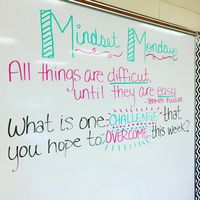 Mindset Monday
All things are difficut,
until they are easy
-Thomas Fuller
What is one CHALLENGE that
you hope to OVERCOME this week?